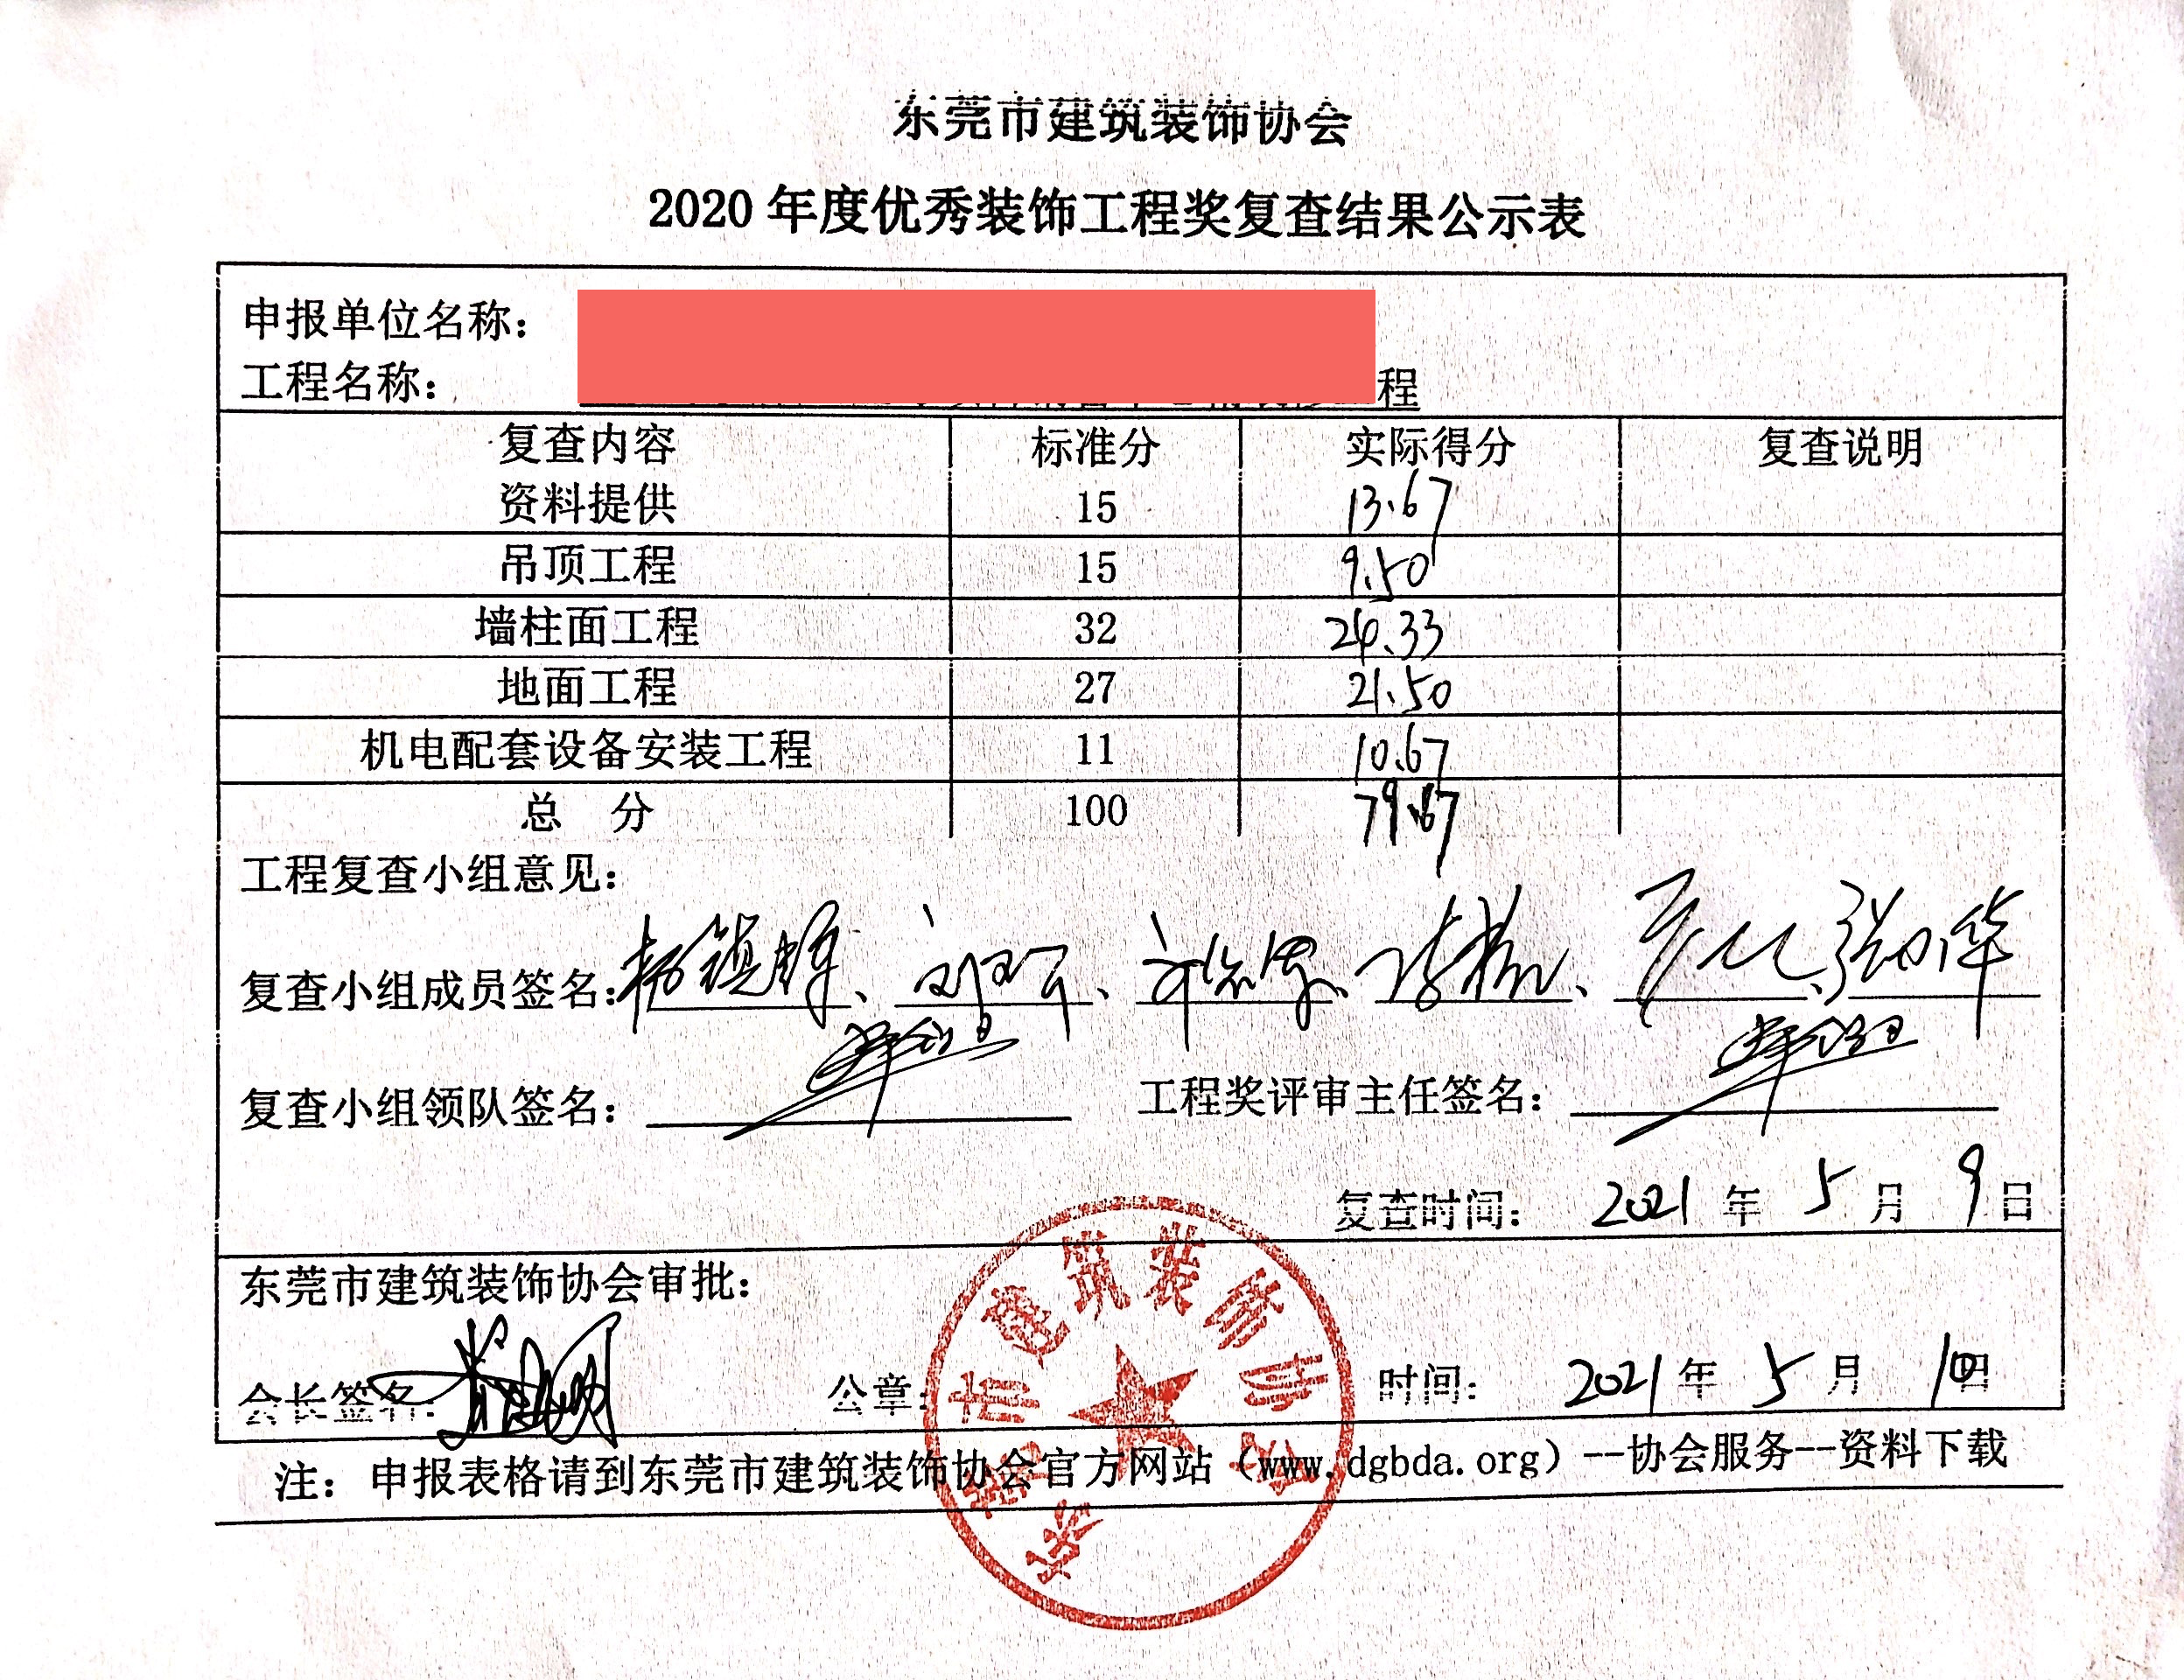 东莞市建筑装饰协会
2020 年度优秀装饰工程奖复查结果公示表
申报单位名称：
工程名称： 程
复查内容 标准分 实际得分 复查说明
资料提供 15 13.67
吊顶工程 15 9.50
墙柱面工程 32 24.33
地面工程 27 21.50
机电配套设备安装工程 11 10.67
总 分 100 79.67
工程复查小组意见：
复查小组成员签名： 杨镇辉、
复查小组领队签名： 工程奖评审主任签名：
复查时间： 2021 年 5 月 9 日
东莞市建筑装饰协会审批：
会长签名： 公章： 时间： 2021 年 5 月 10 日
东莞市建筑装饰协会
注： 申报表格请到东莞市建筑装饰协会官方网站（www.dgbda.org）--协会服务--资料下载